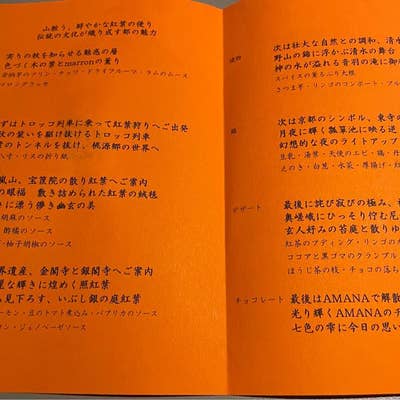 山粧う、鮮やかな紅葉の便り
伝統の文化が織り成す都の魅力
実りの秋を知らせる魅惑の層
色づく木の景とmarronの薫り
のプリン・ナッツ・ドライフルーツ・ラムのムース
マロングラッセ
ずはトロッコ列車に乗って紅葉狩りへご出発
秋の装いを駆け抜けるトロッコ列車
葉のトンネルを抜け、桃源郷の世界へ
・リスの折り紙
嵐山、宝筐院の散り紅葉へご案内
の眼福 敷き詰められた紅葉の絨毯
さに漂う儚き幽玄の美
胡麻のソース
酢橘のソース
・柚子胡椒のソース
界遺産、金閣寺と銀閣寺へご案内
な輝きに煌めく照紅葉
見下ろす、いぶし銀の庭紅葉
ーモン・豆のトマト煮込み・パプリカのソース
ン・ジェノベーゼソース
次は壮大な自然との調和、清水
野山の錦に浮かぶ清水の舞台
神の水が込める音羽の滝に御
スパイスの薫るぶり大根
さつま芋・リンゴのコンポート・ブル
次は京都のシンボル、東寺の
月夜に輝く瓢箪池に映る逆
幻想的な夜のライトアップ
豆乳・湯葉・天使のエビ・鶏・丹
えのき・白葱・水菜・厚揚げ・
デザート
最後に詫び寂びの極み、祇
奥嵯峨にひっそり佇む尼
玄人好みの苔庭と散りゆ
紅茶のプディング・リンゴのカ
ココアと黒ゴマのクランブル
ほうじ茶の枝・チョコの落ち
チョコレート
最後はAMANAで解散
光り輝くAMANAのチ
七色の雫に今日の思い